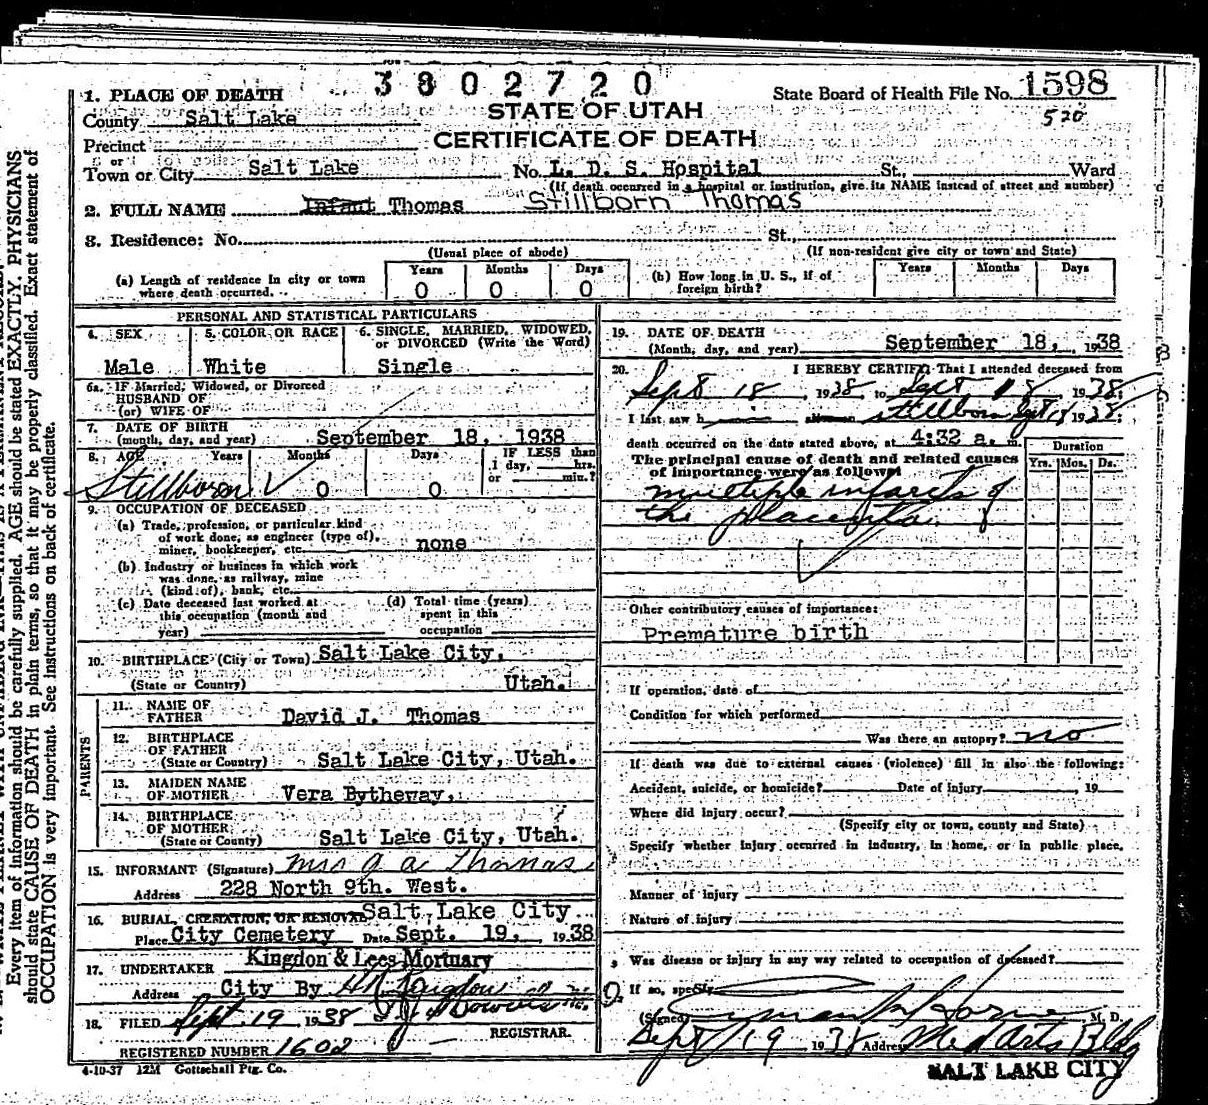 3802720
1. PLACE OF DEATH
STATE OF UTAH
CERTIFICATE OF DEATH
State Board of Health File No. 1598
520
County Salt Lake
Precinct
or
Town or City Salt Lake No. L. D. S. Hospital St., Ward
(If death occurred in a hospital or institution, give its NAME instead of street and number)
2. FULL NAME Infant Thomas Stillborn Thomas
3. Residence: No. St.,
(Usual place of abode) (If non-resident give city or town and State)
(a) Length of residence in city or town where death occurred. Years 0 Months 0 Days 0
(b) How long in U. S., if of foreign birth? Years Months Days
PERSONAL AND STATISTICAL PARTICULARS
4. SEX Male
5. COLOR OR RACE White
6. SINGLE, MARRIED, WIDOWED, or DIVORCED (Write the Word) Single
6a. IF Married, Widowed, or Divorced
HUSBAND OF
(or) WIFE OF
7. DATE OF BIRTH
(month, day, and year) September 18, 1938
8. AGE Years Months Days IF LESS than
1 day, hrs.
or min.?
Stillborn 0 0
9. OCCUPATION OF DECEASED
(a) Trade, profession, or particular kind
of work done, as engineer (type of),
miner, bookkeeper, etc. none
(b) Industry or business in which work
was done, as railway, mine
(kind of), bank, etc.
(c) Date deceased last worked at
this occupation (month and
year)
(d) Total time (years)
spent in this
occupation
10. BIRTHPLACE (City or Town) Salt Lake City,
(State or Country) Utah.
PARENTS
11. NAME OF
FATHER David J. Thomas
12. BIRTHPLACE
OF FATHER
(State or Country) Salt Lake City, Utah.
13. MAIDEN NAME
OF MOTHER Vera Bytheway,
14. BIRTHPLACE
OF MOTHER
(State or Country) Salt Lake City, Utah.
15. INFORMANT (Signature) Mrs J a Thomas
Address 228 North 9th. West.
16. BURIAL, CREMATION, OR REMOVAL Salt Lake City
Place City Cemetery Date Sept. 19, 1938
17. UNDERTAKER Kingdon & Lees Mortuary
Address City By
18. FILED Sept. 19 1938
REGISTRAR.
REGISTERED NUMBER 1602
4-10-37 12M Gottschall Ptg. Co.
19. DATE OF DEATH
(Month, day, and year) September 18, 1938
20. I HEREBY CERTIFY That I attended deceased from
Sept 18, 1938, to Sept 18, 1938,
I last saw h stillborn Sept 18 1938;
death occurred on the date stated above, at 4:32 a. m.
The principal cause of death and related causes
of importance were as follows:
Duration
Yrs. Mos. Ds.
multiple infarcts of
the placenta
Other contributory causes of importance:
Premature birth
If operation, date of
Condition for which performed
Was there an autopsy? no
If death was due to external causes (violence) fill in also the following:
Accident, suicide, or homicide? Date of injury , 19
Where did injury occur?
(Specify city or town, county and State)
Specify whether injury occurred in industry, in home, or in public place.
Manner of injury
Nature of injury
Was disease or injury in any way related to occupation of deceased?
If so, specify
(Signed) M. D.
Sept 19 1938 Address Med Arts Bldg
SALT LAKE CITY
Every item of information should be carefully supplied. AGE should be stated EXACTLY. PHYSICIANS
should state CAUSE OF DEATH in plain terms, so that it may be properly classified. Exact statement of
OCCUPATION is very important. See instructions on back of certificate.